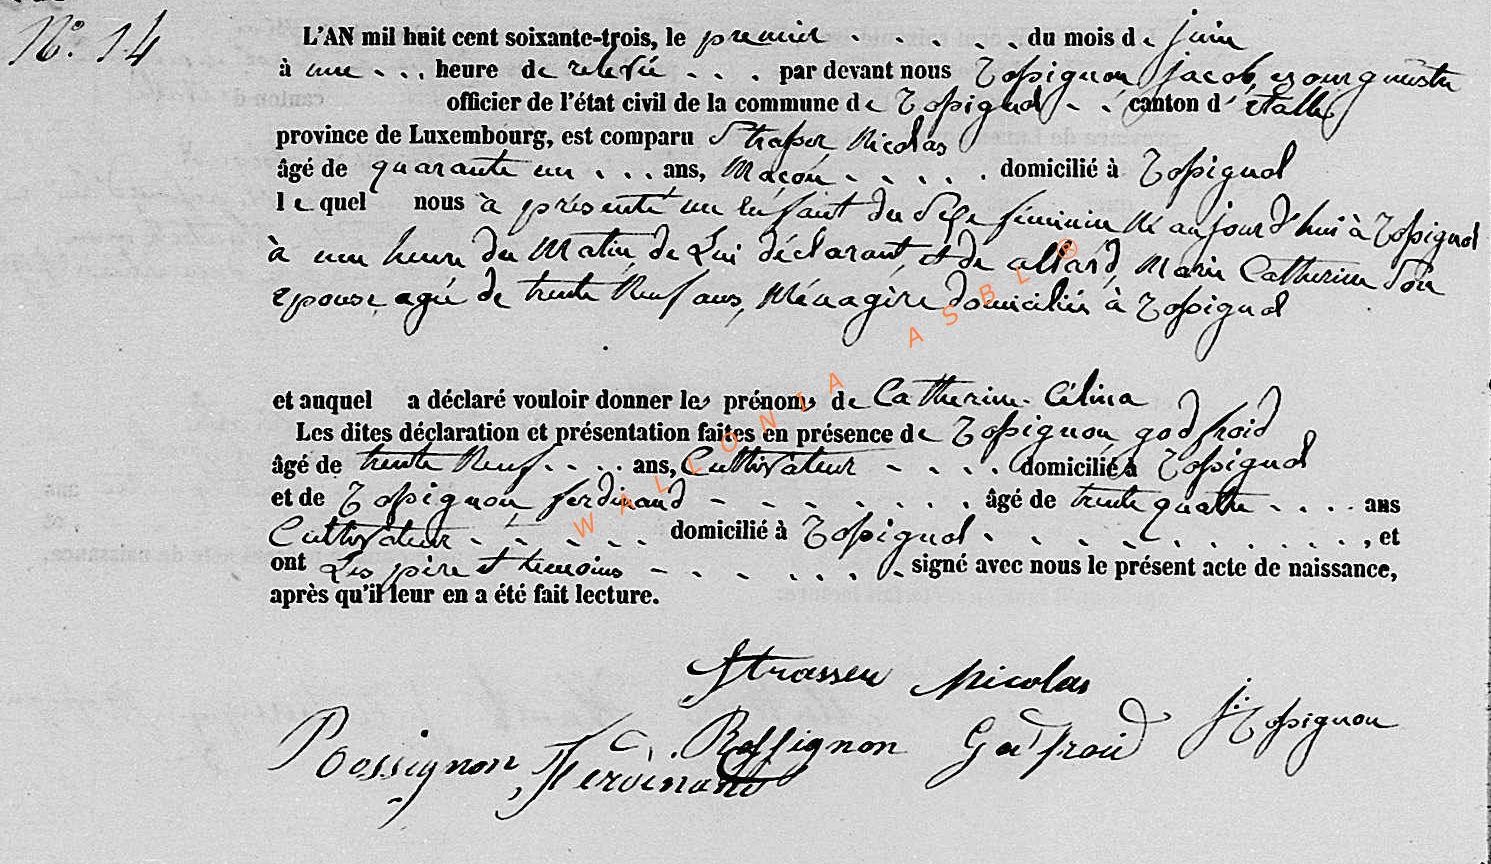 N.° 14
L'AN mil huit cent soixante-trois, le premier . . . . . . du mois de juin
à une . . . heure de relevée . . . par devant nous Rossignon jacob, Bourguestre
officier de l'état civil de la commune de Rossignol - . canton d'étalle
province de Luxembourg, est comparu Strasser Nicolas
âgé de quarante un . . . ans, Maçon . . . . . domicilié à Rossignol
lequel nous à présenté un Enfant du Sexe féminin Né aujourd'hui à Rossignol
à une heure du Matin, de Lui déclarant, et de allard, Marie Catherine Son
epouse, agée de trente Neuf ans, Ménagère domiciliés à Rossignol
et auquel a déclaré vouloir donner les prénoms de Catherine Célina
Les dites déclaration et présentation faites en présence de Rossignon, godfroid
âgé de trente Neuf . . . . ans, Cultivateur - . . . . domicilié à Rossignol
et de Rossignon ferdinand - . . . . . . . . âgé de trente quatre . . . . ans
Cultivateur . . . . . . domicilié à Rossignol . . . . . . . . . . . . , et
ont Les père et temoins - . . . . . . . signé avec nous le présent acte de naissance,
après qu'il leur en a été fait lecture.
Strasser Nicolas
Rossignon Ferdinand
Rossignon Godfroid
j. Rossignon
WALLONIA ASBL ®